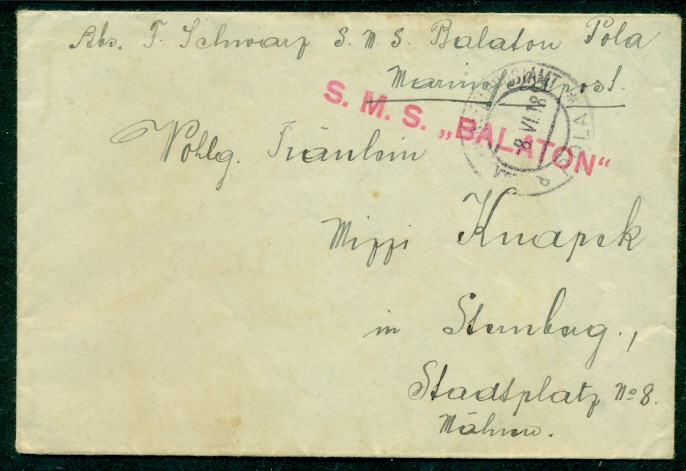 Abs. F. Schwarz S. M. S. Balaton Pola
Marinefeldpost.
S. M. S. „BALATON“
8. VI. 18
POLA
Wohlg. Fräulein
Mizzi Knapek
in Sternberg.,
Stadtplatz No 8.
Mähren.